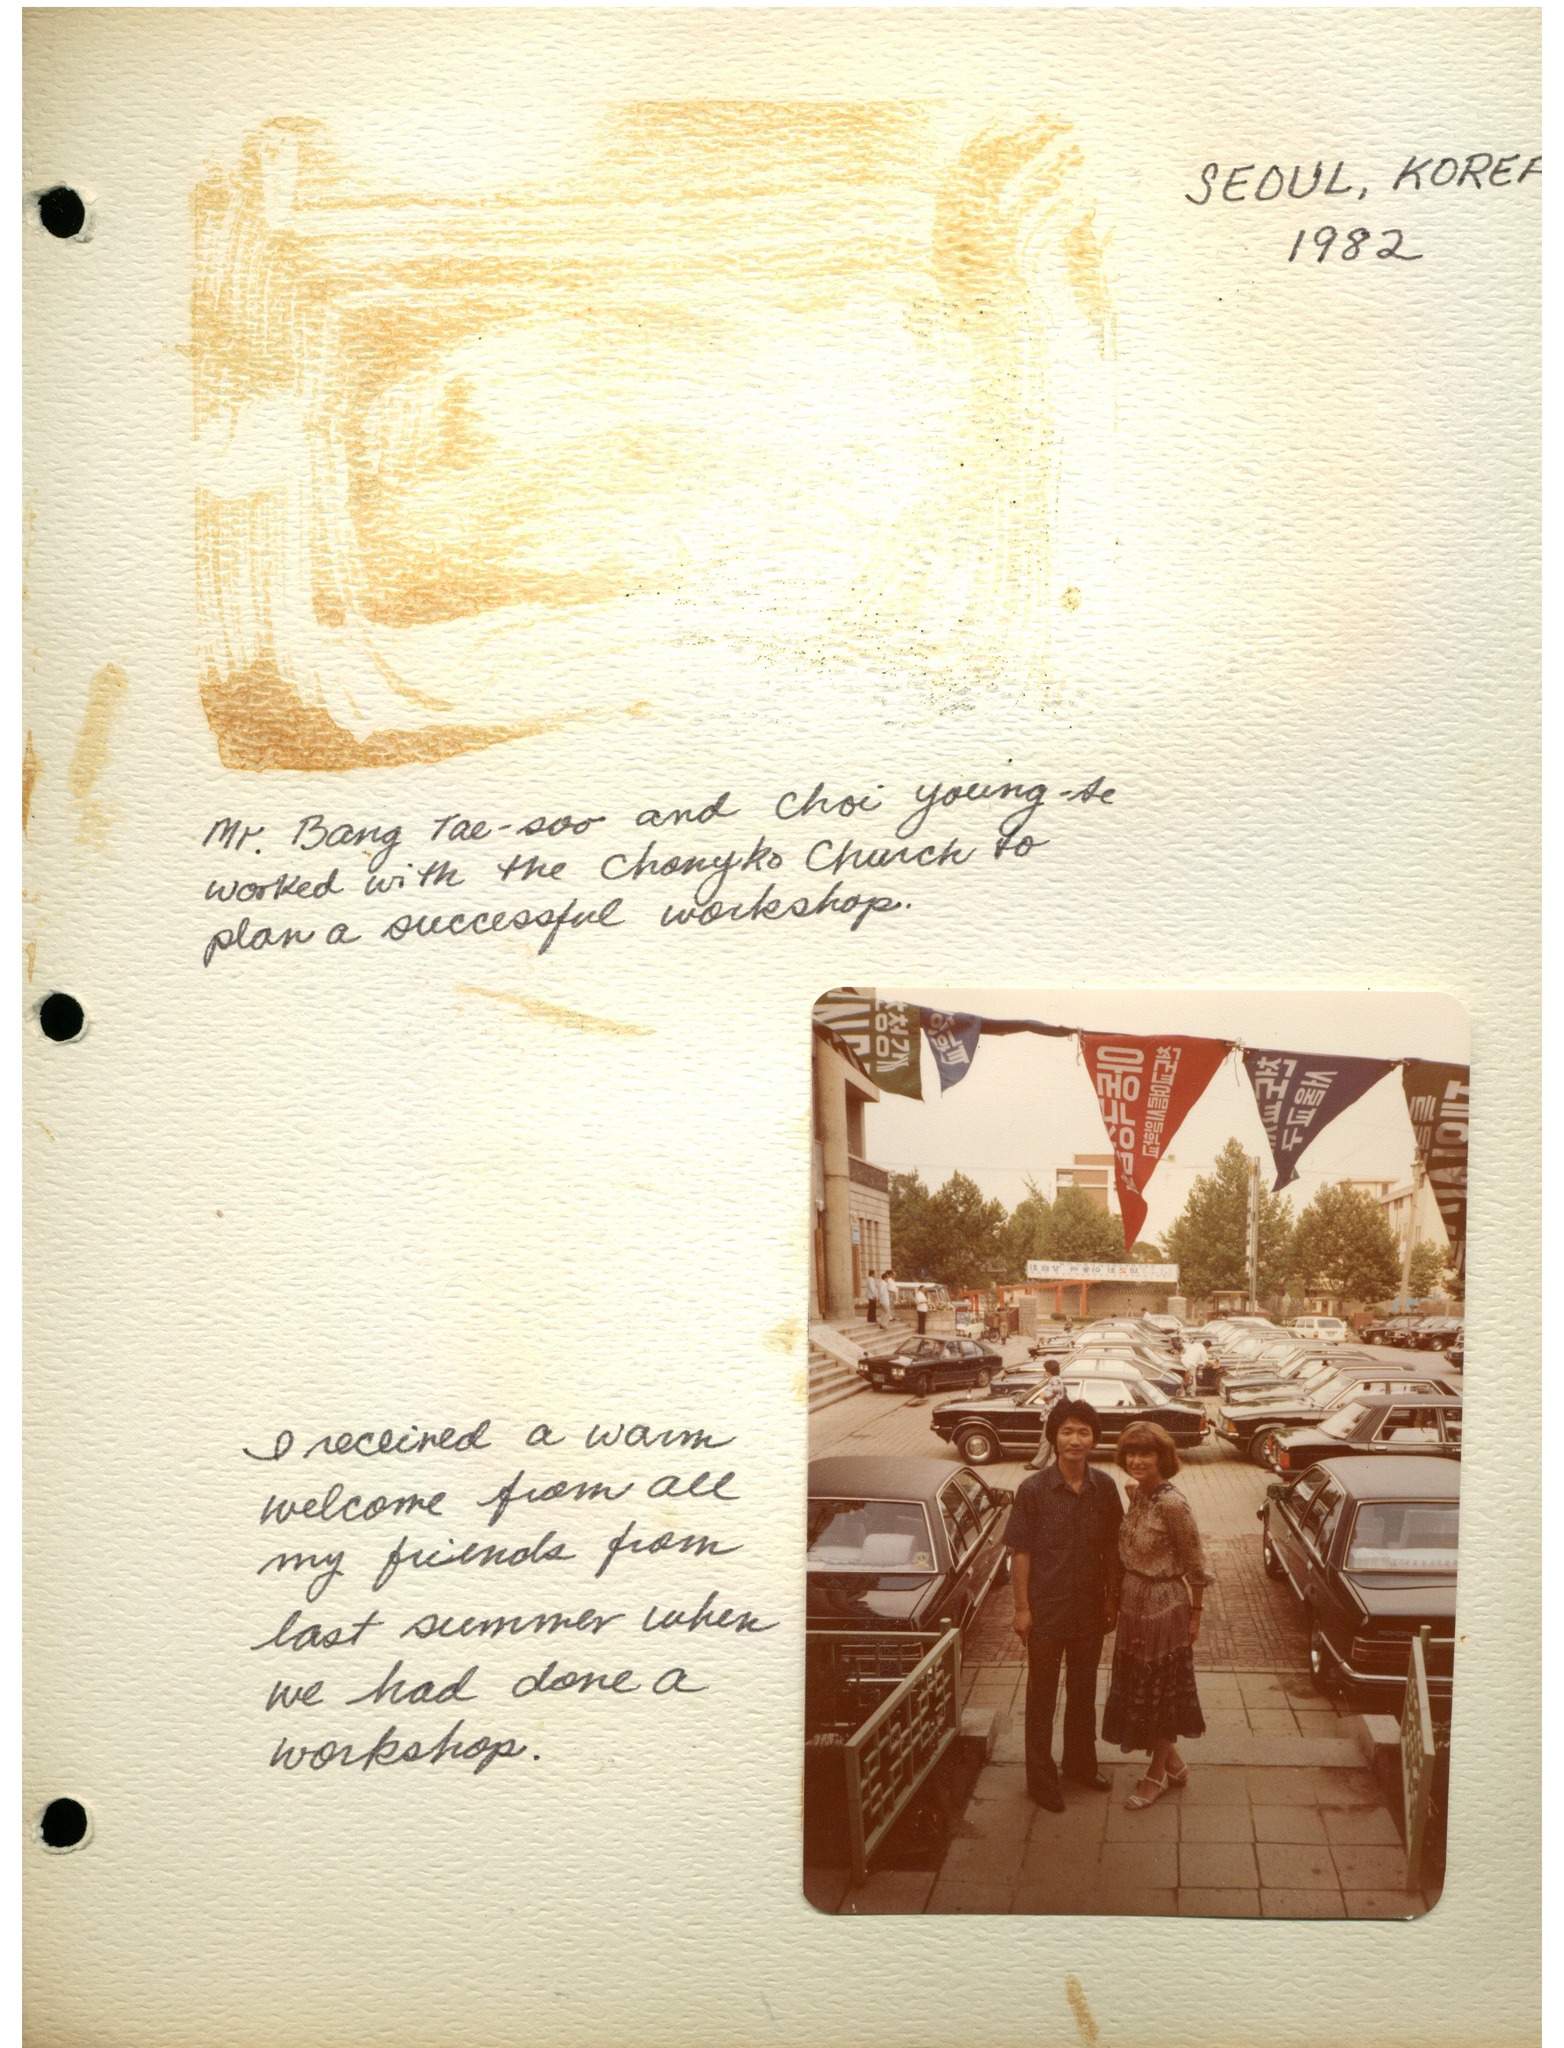 SEOUL, KOREA
1982
Mr. Bang Tae-soo and Choi young-te
worked with the Chongko Church to
plan a successful workshop.
I received a warm
welcome from all
my friends from
last summer when
we had done a
workshop.
어린이
서울교구